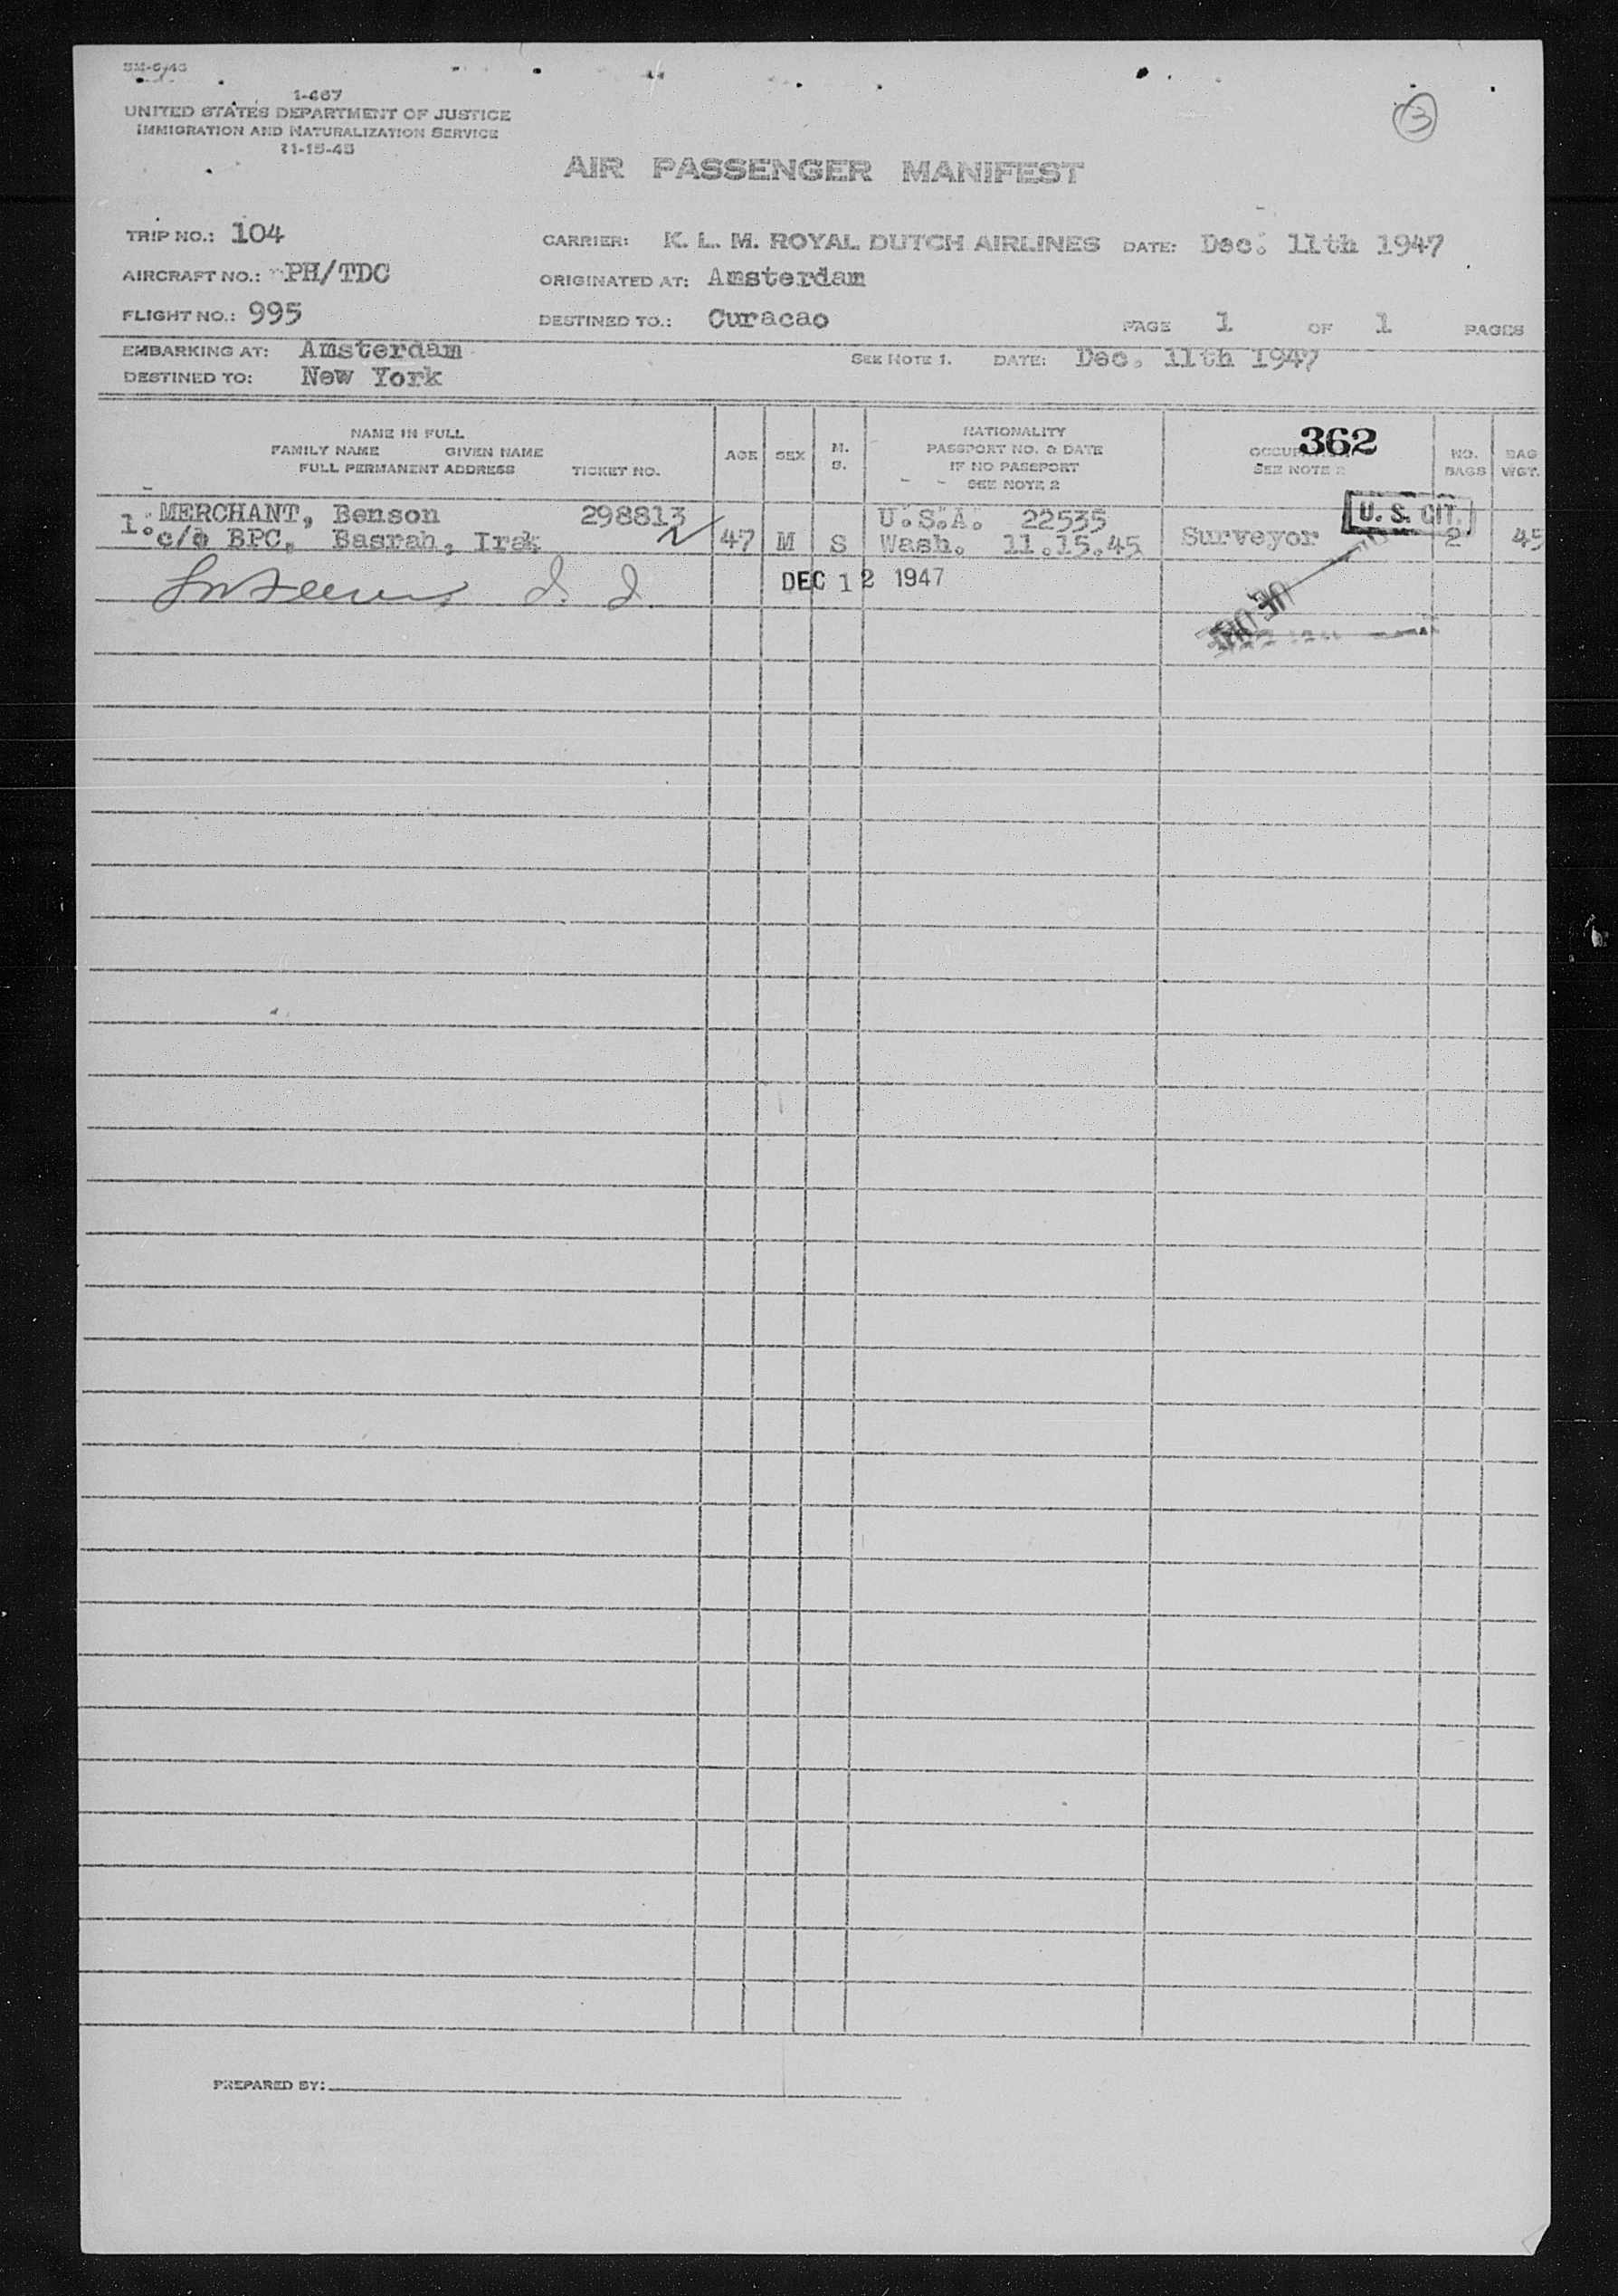 3
1-467
UNITED STATES DEPARTMENT OF JUSTICE
IMMIGRATION AND NATURALIZATION SERVICE
11-15-45
AIR PASSENGER MANIFEST
TRIP NO.: 104 CARRIER: K. L. M. ROYAL DUTCH AIRLINES DATE: Dec. 11th 1947
AIRCRAFT NO.: PH/TDC ORIGINATED AT: Amsterdam
FLIGHT NO.: 995 DESTINED TO.: Curacao PAGE 1 OF 1 PAGES
EMBARKING AT: Amsterdam SEE NOTE 1. DATE: Dec. 11th 1947
DESTINED TO: New York
NAME IN FULL
FAMILY NAME GIVEN NAME
FULL PERMANENT ADDRESS TICKET NO.
AGE
SEX
M.
S.
NATIONALITY
PASSPORT NO. & DATE
IF NO PASSPORT
SEE NOTE 2
362
SEE NOTE 2
NO.
BAGS
BAG
WGT.
1. MERCHANT, Benson 298813 U.S.A. 22535 U. S. CIT.
c/o BPC, Basrah, Irak 47 M S Wash. 11.15.45 Surveyor 2 45
DEC 12 1947
PREPARED BY: